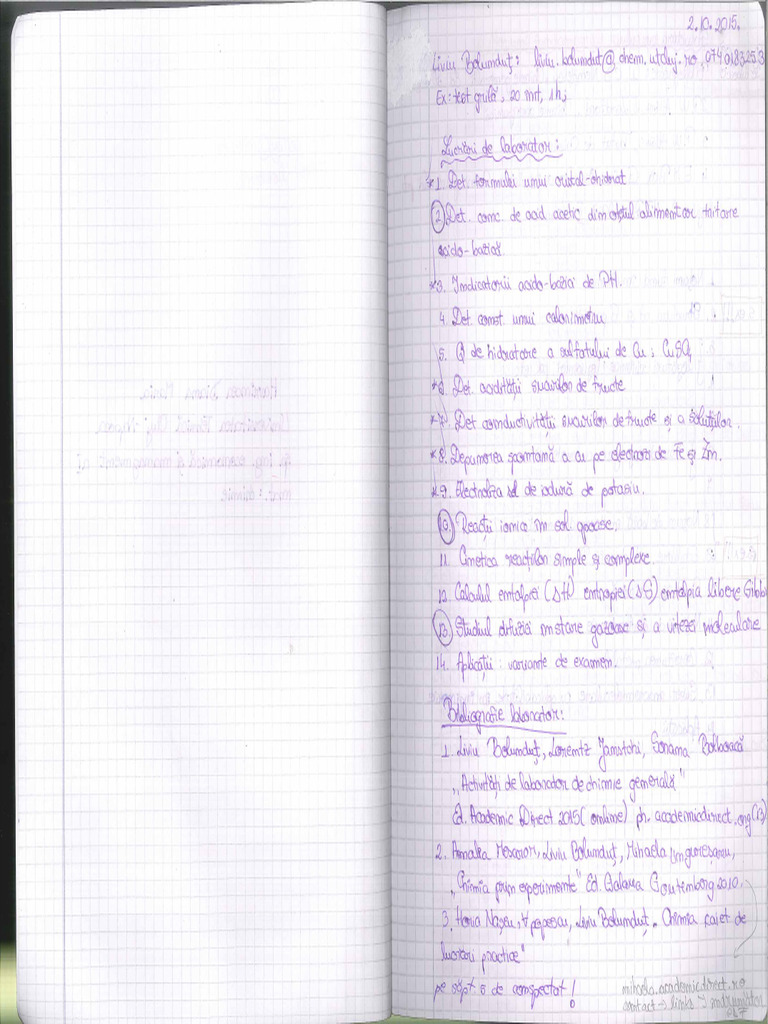 2.10.2015.
Liviu Bolunduț: liviu.bolunduț@chem.utcluj.ro, 0740183253
Ex: test grilă, 20 int, 1h;
Lucrări de laborator:
*1. Det. formulei unui cristal-hidrat
2. Det. conc. de acid acetic din oțetul alimentar titrare
acido-bazica
*3. Indicatorii acido-bazici de PH.
4. Det. const. unui calorimetru
5. Q de hidratare a sulfatului de Cu: CuSO4
*6. Det. acidității sucurilor de fructe
*7. Det conductivității sucurilor de fructe și a soluțiilor.
*8. Depunerea spontană a cu pe electrozi de Fe și Zn.
*9. Electroliza sol de iodură de potasiu.
10. Reacții ionice în sol. apoase.
11. Cinetica reacțiilor simple și complexe.
12. Calculul entalpiei (ΔH) entropiei (ΔS) entalpia libere Gibbs
13. Studiul difuziei în stare gazoasă și a vitezei moleculare
14. Aplicații: variante de examen.
Bibliografie laborator:
1. Liviu Bolunduț, Lorentz Jäntschi, Sorana Bolboacă
„Activități de laborator de chimie generală"
Ed. Academic Direct 2015 (online) ph.academicdirect.org (13)
2. Liviu Bolunduț, Mihaela Ungureșanu,
„Chimia prin experimente" Ed. Galaxia Goutemberg 2010.
3. Horia Nașcu, V popescu, Liviu Bolunduț „Chimia caiet de
lucrări practice"
pe săpt 5 de conspectat!
mihaela.academicdirect.ro
contact → links → îndrumător